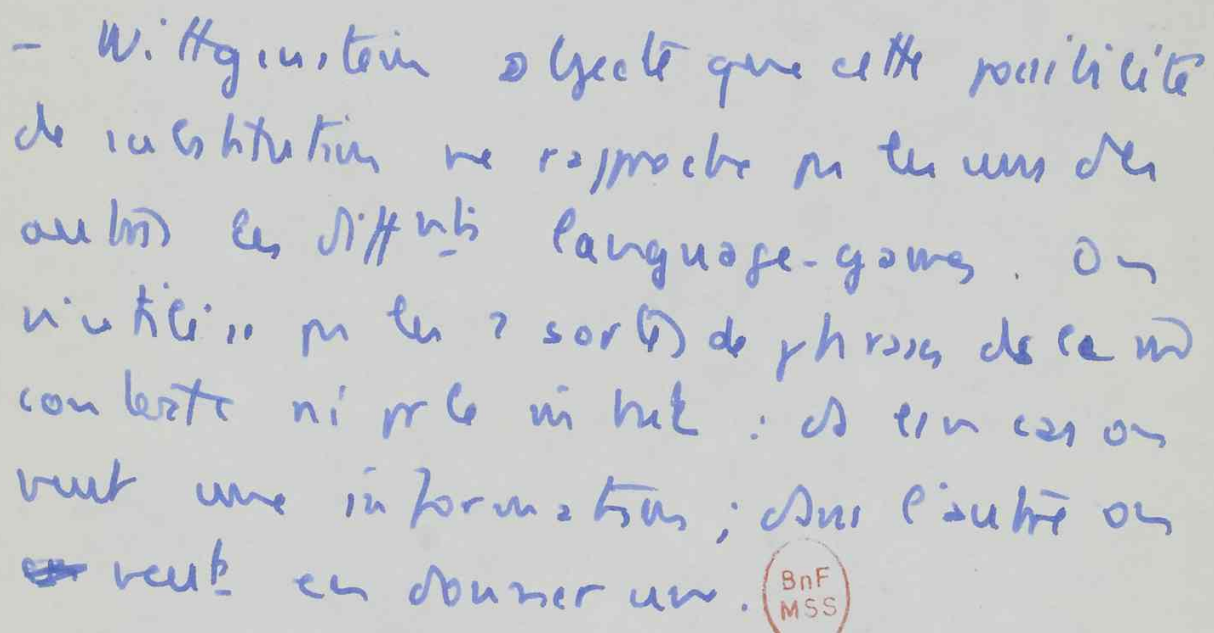 - Wittgenstein objecte que cette possibilité
de substitution ne rapproche pas les uns des
autres les difftnts language-games. On
n'utilise pas les 2 sortes de phrases ds le m̂
contexte ni pr le m̂ but : ds l'un cas on
veut une information ; dans l'autre on
veut en donner une.
BnF
MSS